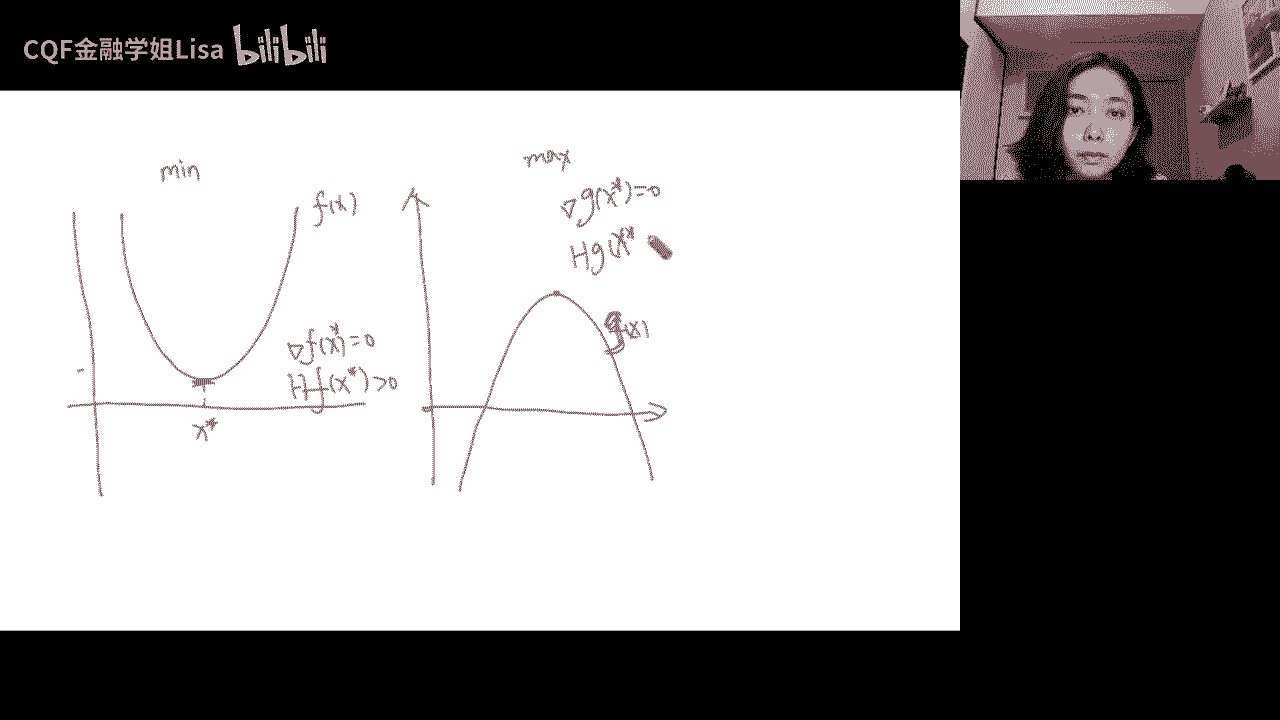 CQF金融学姐Lisa bilibili
min
f(x)
∇f(x*)=0
Hf(x*)>0
x*
max
∇g(x*)=0
Hg(x*
g(x)